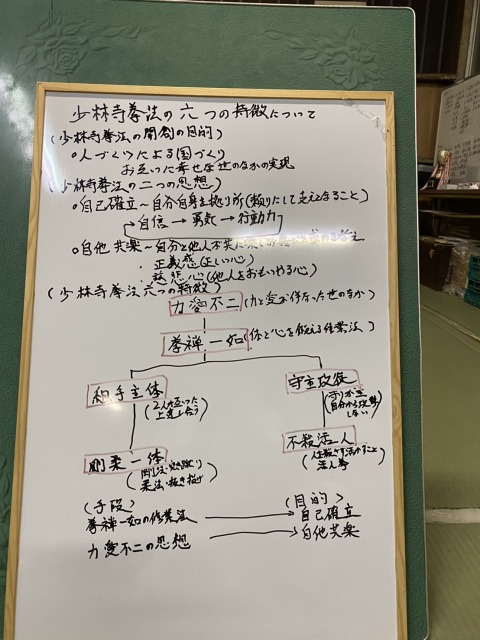 少林寺拳法の六つの特徴について
(少林寺拳法の開創の目的)
○人づくりによる国づくり
お互った幸せな世のなかの実現
(少林寺拳法の二つの思想)
○自己確立～自分自身を拠り所(頼りにして支えとなること)
→自信→勇気→行動力
○自他共楽～自分と他人不
・正義感(正しい心)
慈悲心(他人をおもいやる心)
(少林寺拳法六つの特徴)
力愛不二(力と愛が伴なった世のなか)
拳禅一如(体と心を修める修業法)
組手主体
(2人が互った上達し合う)
守主攻従
(守りが主 自分から攻撃しない)
剛柔一体
(剛法・突き蹴り
柔法・抜き投げ)
不殺活人
(人を殺さず活かすこと
活人拳)
(手段)
(目的)
拳禅一如の修業法 → 自己確立
力愛不二の思想 → 自他共楽